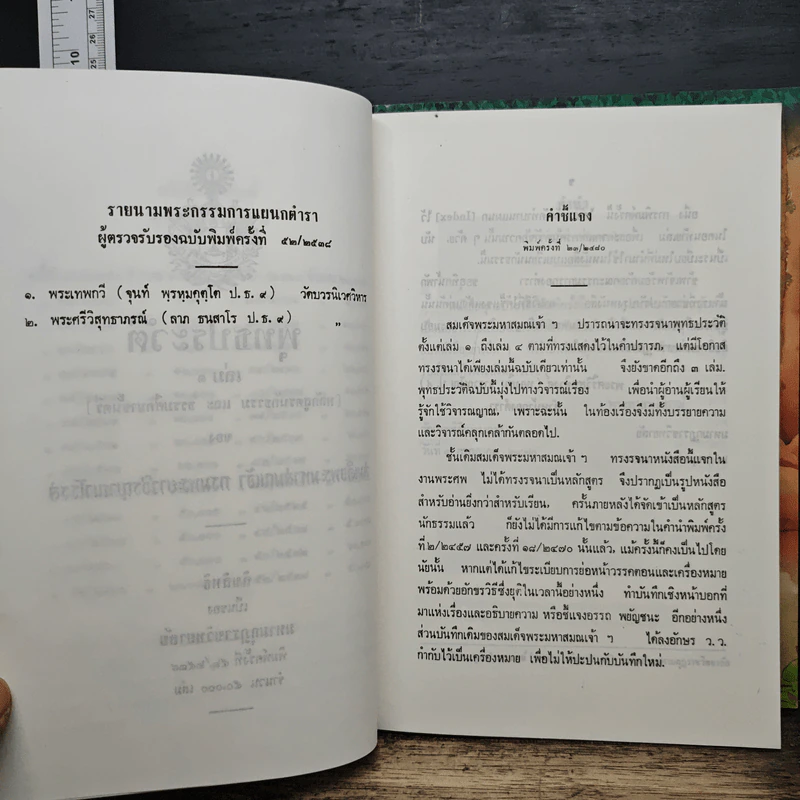 รายนามพระกรรมการแผนกตำรา
ผู้ตรวจรับรองฉบับพิมพ์ครั้งที่ ๕๒/๒๕๓๘
๑. พระเทพกวี ( จุนท์ พฺรหฺมคุตฺโต ป. ธ. ๙ ) วัดบวรนิเวศวิหาร
๒. พระศรีวิสุทธาภรณ์ ( ลาภ ธนสาโร ป. ธ. ๙ ) „
คำชี้แจง
พิมพ์ครั้งที่ ๒๓/๒๔๘๐
สมเด็จพระมหาสมณเจ้า ฯ ปรารถนาจะทรงรจนาพุทธประวัติ
ตั้งแต่เล่ม ๑ ถึงเล่ม ๔ ตามที่ทรงแสดงไว้ในคำปรารภ, แต่มีโอกาส
ทรงรจนาได้เพียงเล่มนี้ฉบับเดียวเท่านั้น จึงยังขาดอีกถึง ๓ เล่ม.
พุทธประวัติฉบับนี้มุ่งไปทางวิจารณ์เรื่อง เพื่อนำผู้อ่านผู้เรียนให้
รู้จักใช้วิจารณญาณ, เพราะฉะนั้น ในท้องเรื่องจึงมีทั้งบรรยายความ
และวิจารณ์คลุกเคล้ากันตลอดไป.
ชั้นเดิมสมเด็จพระมหาสมณเจ้า ฯ ทรงรจนาหนังสือนี้แจกใน
งานพระศพ ไม่ได้ทรงรจนาเป็นหลักสูตร จึงปรากฏเป็นรูปหนังสือ
สำหรับอ่านยิ่งกว่าสำหรับเรียน, ครั้นภายหลังได้จัดเข้าเป็นหลักสูตร
นักธรรมแล้ว ก็ยังไม่ได้มีการแก้ไขตามข้อความในคำนำพิมพ์ครั้ง
ที่ ๒/๒๔๕๗ และครั้งที่ ๑๘/๒๔๗๐ นั้นแล้ว, แม้ครั้งนี้ก็คงเป็นไปโดย
นัยนั้น หากแต่ได้แก้ไขระเบียบการย่อหน้าวรรคตอนและเครื่องหมาย
พร้อมด้วยอักขรวิธีซึ่งยุติในเวลานี้อย่างหนึ่ง ทำบันทึกเชิงหน้าบอกที่
มาแห่งเรื่องและอธิบายความ หรือชี้แจงอรรถ พยัญชนะ อีกอย่างหนึ่ง
ส่วนบันทึกเดิมของสมเด็จพระมหาสมณเจ้า ฯ ได้ลงอักษร ว. ว.
กำกับไว้เป็นเครื่องหมาย เพื่อไม่ให้ปะปนกับบันทึกใหม่.